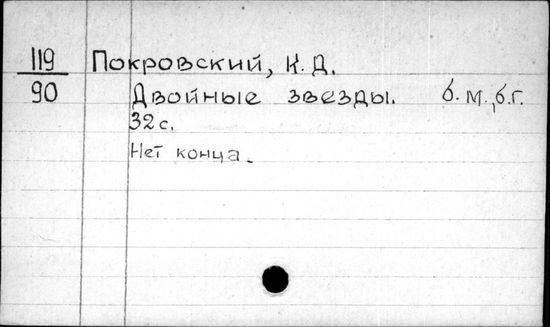 119 Покровский, К. Д.
90 Двойные звезды. б. м., б. г.
32 с.
Нет конца.